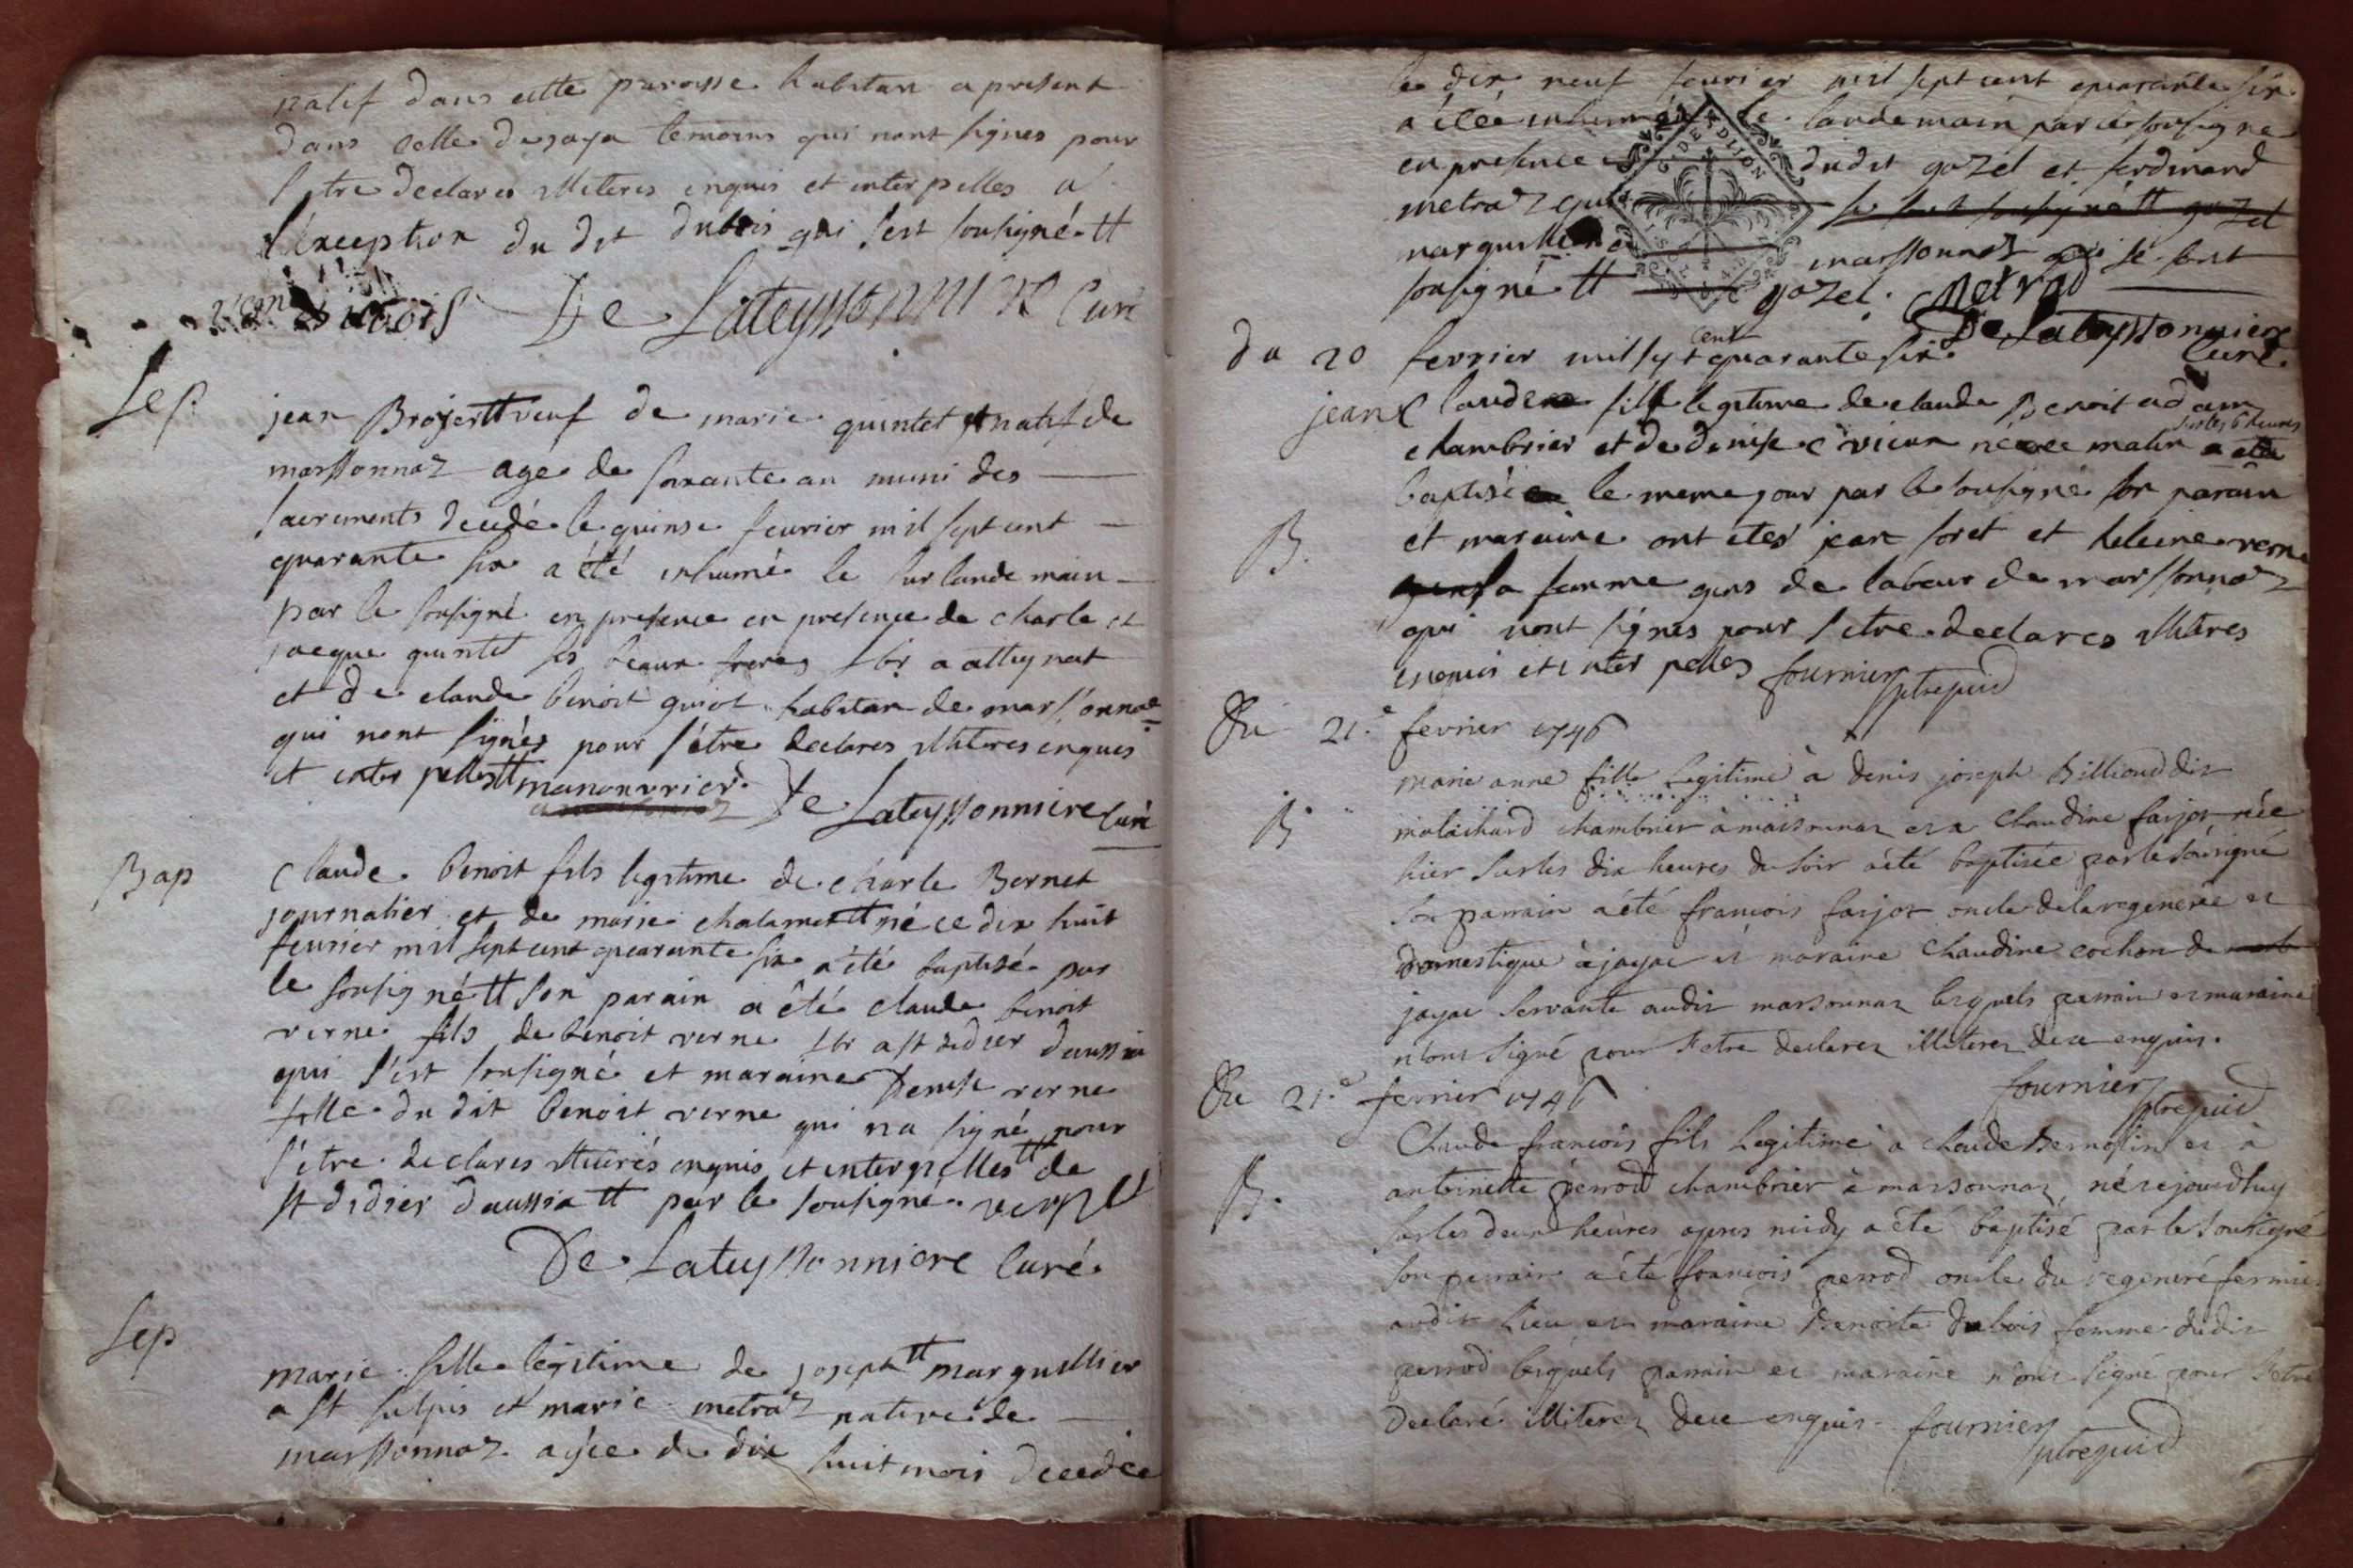 natif dans cette paroisse habitan a present
dans celle de jaya temoins qui nont signes pour
s'etre declares illiteres enquis et inter pelles a
l'exception du dit dubois qui s'est sousigné tt
dubois De Lateyssonniere Curé
Sep.
jean Brojer tt veuf de marie quintet natif de
marssonnaz agé de soixante an muni des
sacrements decedé le quinse feurier mil sept cent
quarante six a été inhumé le surlande main
par le sousigné en presence en presence de charle et
jacque quintet ses beaux freres lbr a attignat
et de claude benoit guiot habitan de marssonnaz
qui nont signés pour s'être declares illiteres enquis
et inter pelles tt manouvrier
De Lateyssonniere Curé
Bap
Claude benoit fils legitime de charle Bernet
journalier et de marie chalamet tt né ce dix huit
feurier mil sept cent quarante six a été baptisé par
le sousigné tt son parain a été claude benoit
verne fils de benoit verne lbr a st didier daussia
qui s'est sousigné et maraine Denise verne
fille du dit benoit verne qui na signé pour
s'etre declares illiterés enquis et interpelles tt de
st didier daussia tt par le sousigné verne
De Lateyssonniere Curé
Sep
marie fille legitime de joseph tt marguillier
a st sulpis et marie metraz native de
marssonnaz agée de dix huit mois decedée
le dix neuf feurier mil sept cent quarante six
a étée inhumée le landemain par le sousigné
en presence dudit gozel et ferdinand
metraz
G. DE DIJON
marssonnaz qui se sont
sousigné tt gozel. Metraz
De Lateyssonniere
Curé.
du 20 fevrier mil sept cent quarante six
jean Claude fils legitime de claude Benoit adam
chambrier et de denise né ce matin sur les 6 heures a été
baptisé le meme jour par le sousigné son parain
B.
et maraine ont etes jean foret et heleine verne
sa famme gens de labeur de marssonnaz
qui nont signes pour s'etre declares illiteres
enquis et inter pelles fournier ptre
Du 21.e fevrier 1746
B
marie anne fille legitime à denis joseph Billioud dit
malachard chambrier à marsonnaz et à Claudine farjot née
hier sur les dix heures du soir a été baptisée par le sousigné
son parrain a été francois farjot oncle de la regenerée et
domestique à jayac et maraine Claudine cochon de
jayac servante audit marsonnaz lesquels parrain et maraine
n'ont signé pour s'etre declarez illiterez de ce enquis.
fournier ptre
Du 21.e fevrier 1746
B.
Claude francois fils legitime à claude Demolin et à
antoinette perrod chambrier à marsonnaz, né cejourdhuy
sur les deux heures apres midy a été baptisé par le sousigné
son parrain a été francois perrod oncle du regeneré fermier
audit lieu et maraine Benoite Dubois femme dudit
perrod lesquels parrain et maraine n'ont signé pour s'etre
declaré illiterez de ce enquis. fournier ptre